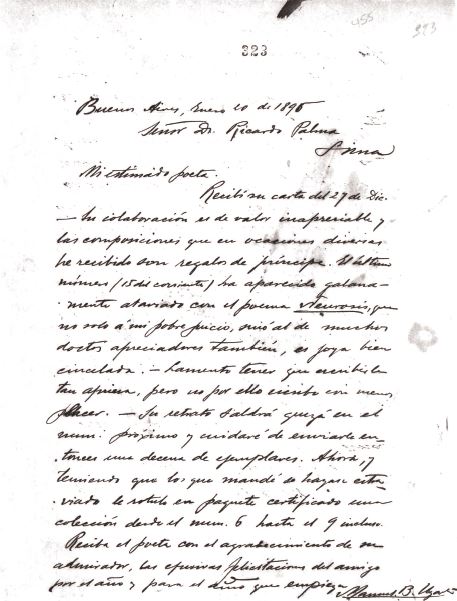 455
993
323
Buenos Aires, Enero 10 de 1896
Señor Dr. Ricardo Palma
Lima
Mi estimado poeta.
Recibí su carta del 27 de Dic.
— Su colaboración es de valor inapreciable y
las composiciones que en ocaciones diversas
he recibido son regalos de príncipe. El último
número (15 del corriente) ha aparecido galana-
mente ataviado con el poema Neurosis, que
no solo á mi pobre juicio, sinó al de muchos
doctos apreciadores también, es joya bien
cincelada. — Lamento tener que escribirle
tan aprisa, pero no por ello escribo con menos
placer. — Su retrato saldrá quizá en el
num. próximo y cuidaré de enviarle en-
tonces una decena de ejemplares. Ahora, y
temiendo que los que mandé se hayan extra-
viado le rotulo en paquete certificado una
colección desde el num. 6 hasta el 9 incluso.
Reciba el poeta con el agradecimiento de su
admirador, las efusivas felicitaciones del amigo
por el año y para el año que empieza
Manuel B. Ugarte